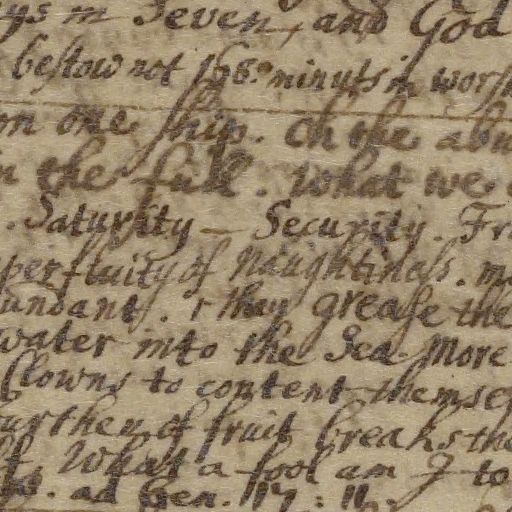 ys in Seven, and God
bestow not 168 minuts in wors
m one ship. Oh the abu
n the full. What we
. Saturity — Security. Fr
perfluity of Naughtiness. m
undant. they grease the
water into the Sea. More
Clowns to content themse
urthen of fruit breaks the
What a fool am I to
ad Gen. 17 : 11.